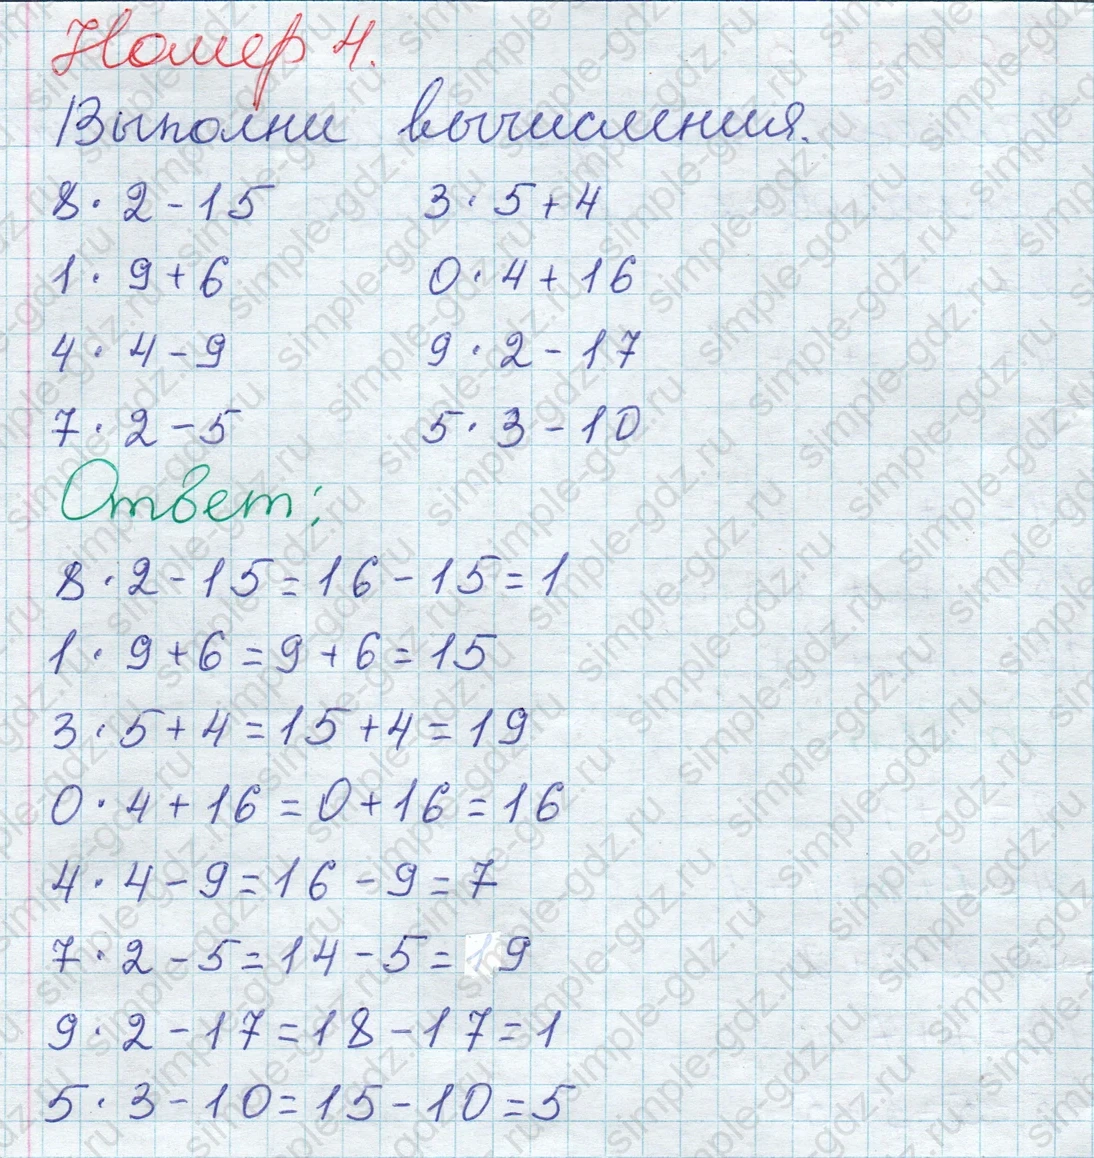 Номер 4.
Выполни вычисления.
8·2-15 3·5+4
1·9+6 0·4+16
4·4-9 9·2-17
7·2-5 5·3-10
Ответ:
8·2-15=16-15=1
1·9+6=9+6=15
3·5+4=15+4=19
0·4+16=0+16=16
4·4-9=16-9=7
7·2-5=14-5=9
9·2-17=18-17=1
5·3-10=15-10=5
simple-gdz.ru